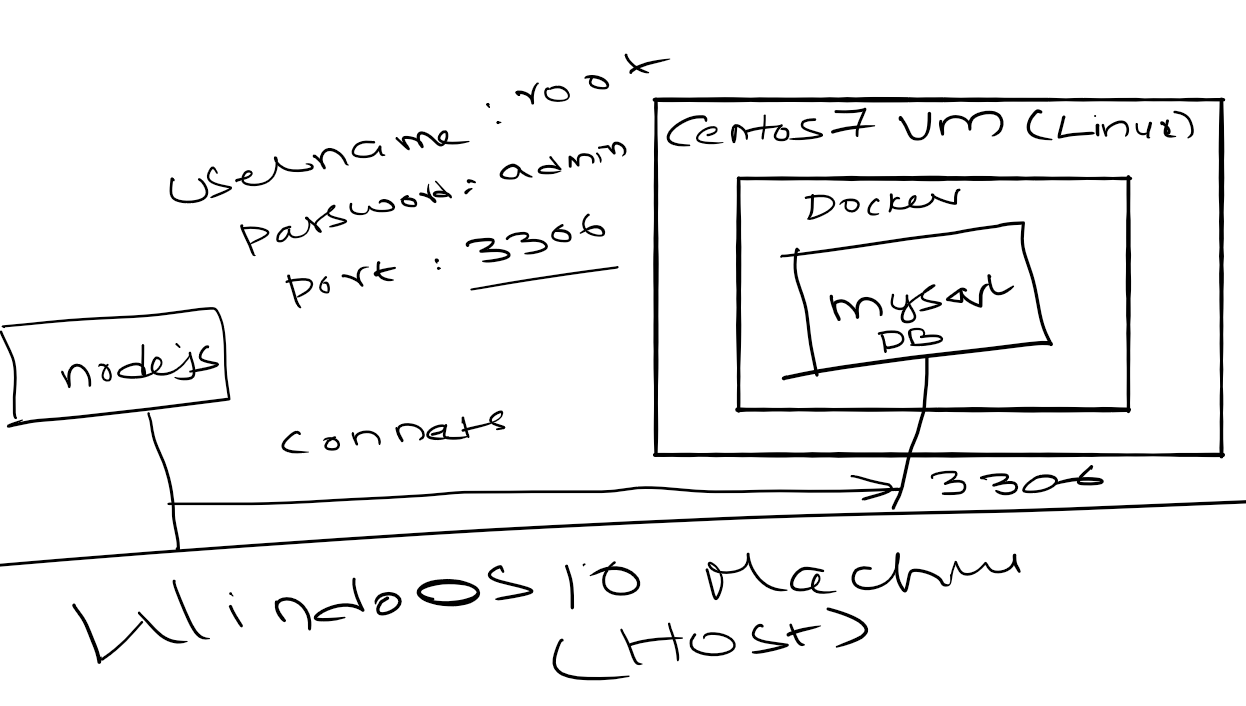 Username : root
Password : admin
port : 3306
Centos 7 VM (Linux)
Docker
mysql
DB
nodejs
Connets
3306
WindoOS 10 Machine
(Host)